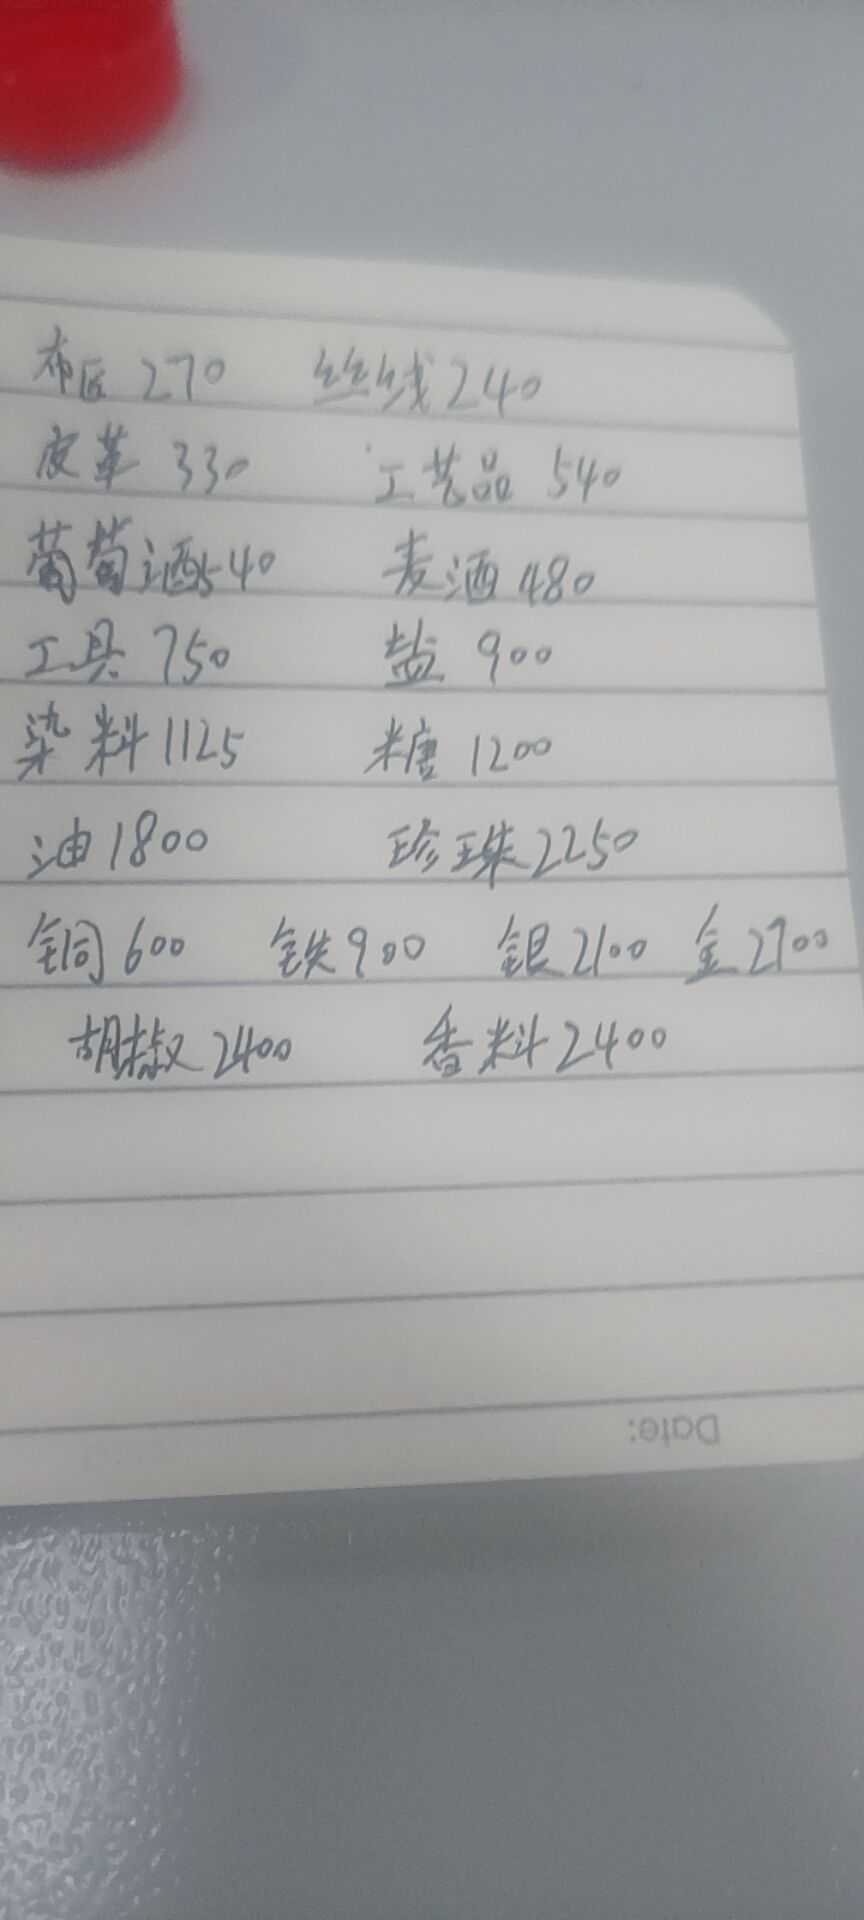 布匹 270 丝线 240
皮革 330 工艺品 540
葡萄酒 540 麦酒 480
工具 750 盐 900
染料 1125 糖 1200
油 1800 珍珠 2250
铜 600 铁 900 银 2100 金 2700
胡椒 2400 香料 2400
Date: